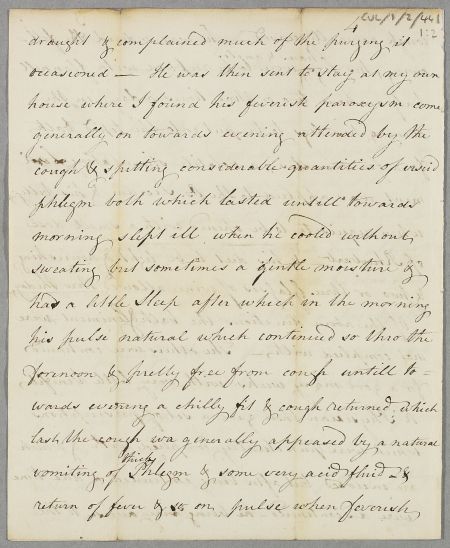 CUL/1/2/441
1:2
draught & complained much of the purging it
occasioned — He was then sent to stay at my own
house where I found his feverish paroxysm come
generally on towards evening attended by the
cough & spitting considerable quantities of viscid
phlegm both which lasted untill towards
morning slept ill when he cooled without
sweating but sometimes a gentle moisture &
has a little sleep after which in the morning
his pulse natural which continued so thro the
forenoon & pretty free from cough untill to=
wards evening a chilly fit & cough returned, which
last the cough wa generally appeased by a natural
vomiting of thick Phlegm & some very acid fluid - &
return of fever & so on pulse when feverish